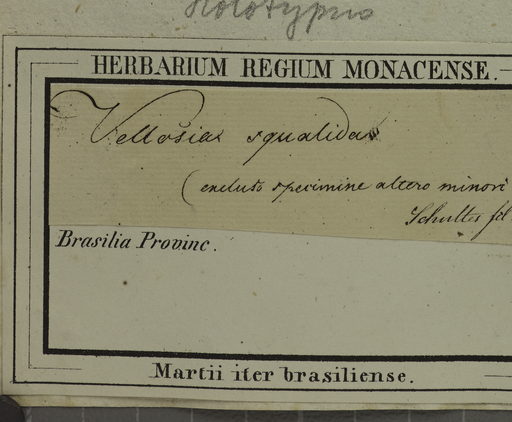 Holotypus
HERBARIUM REGIUM MONACENSE.
Vellosia squalida
(excluso specimine altero minori
Schultes fil
Brasilia Provinc.
Martii iter brasiliense.